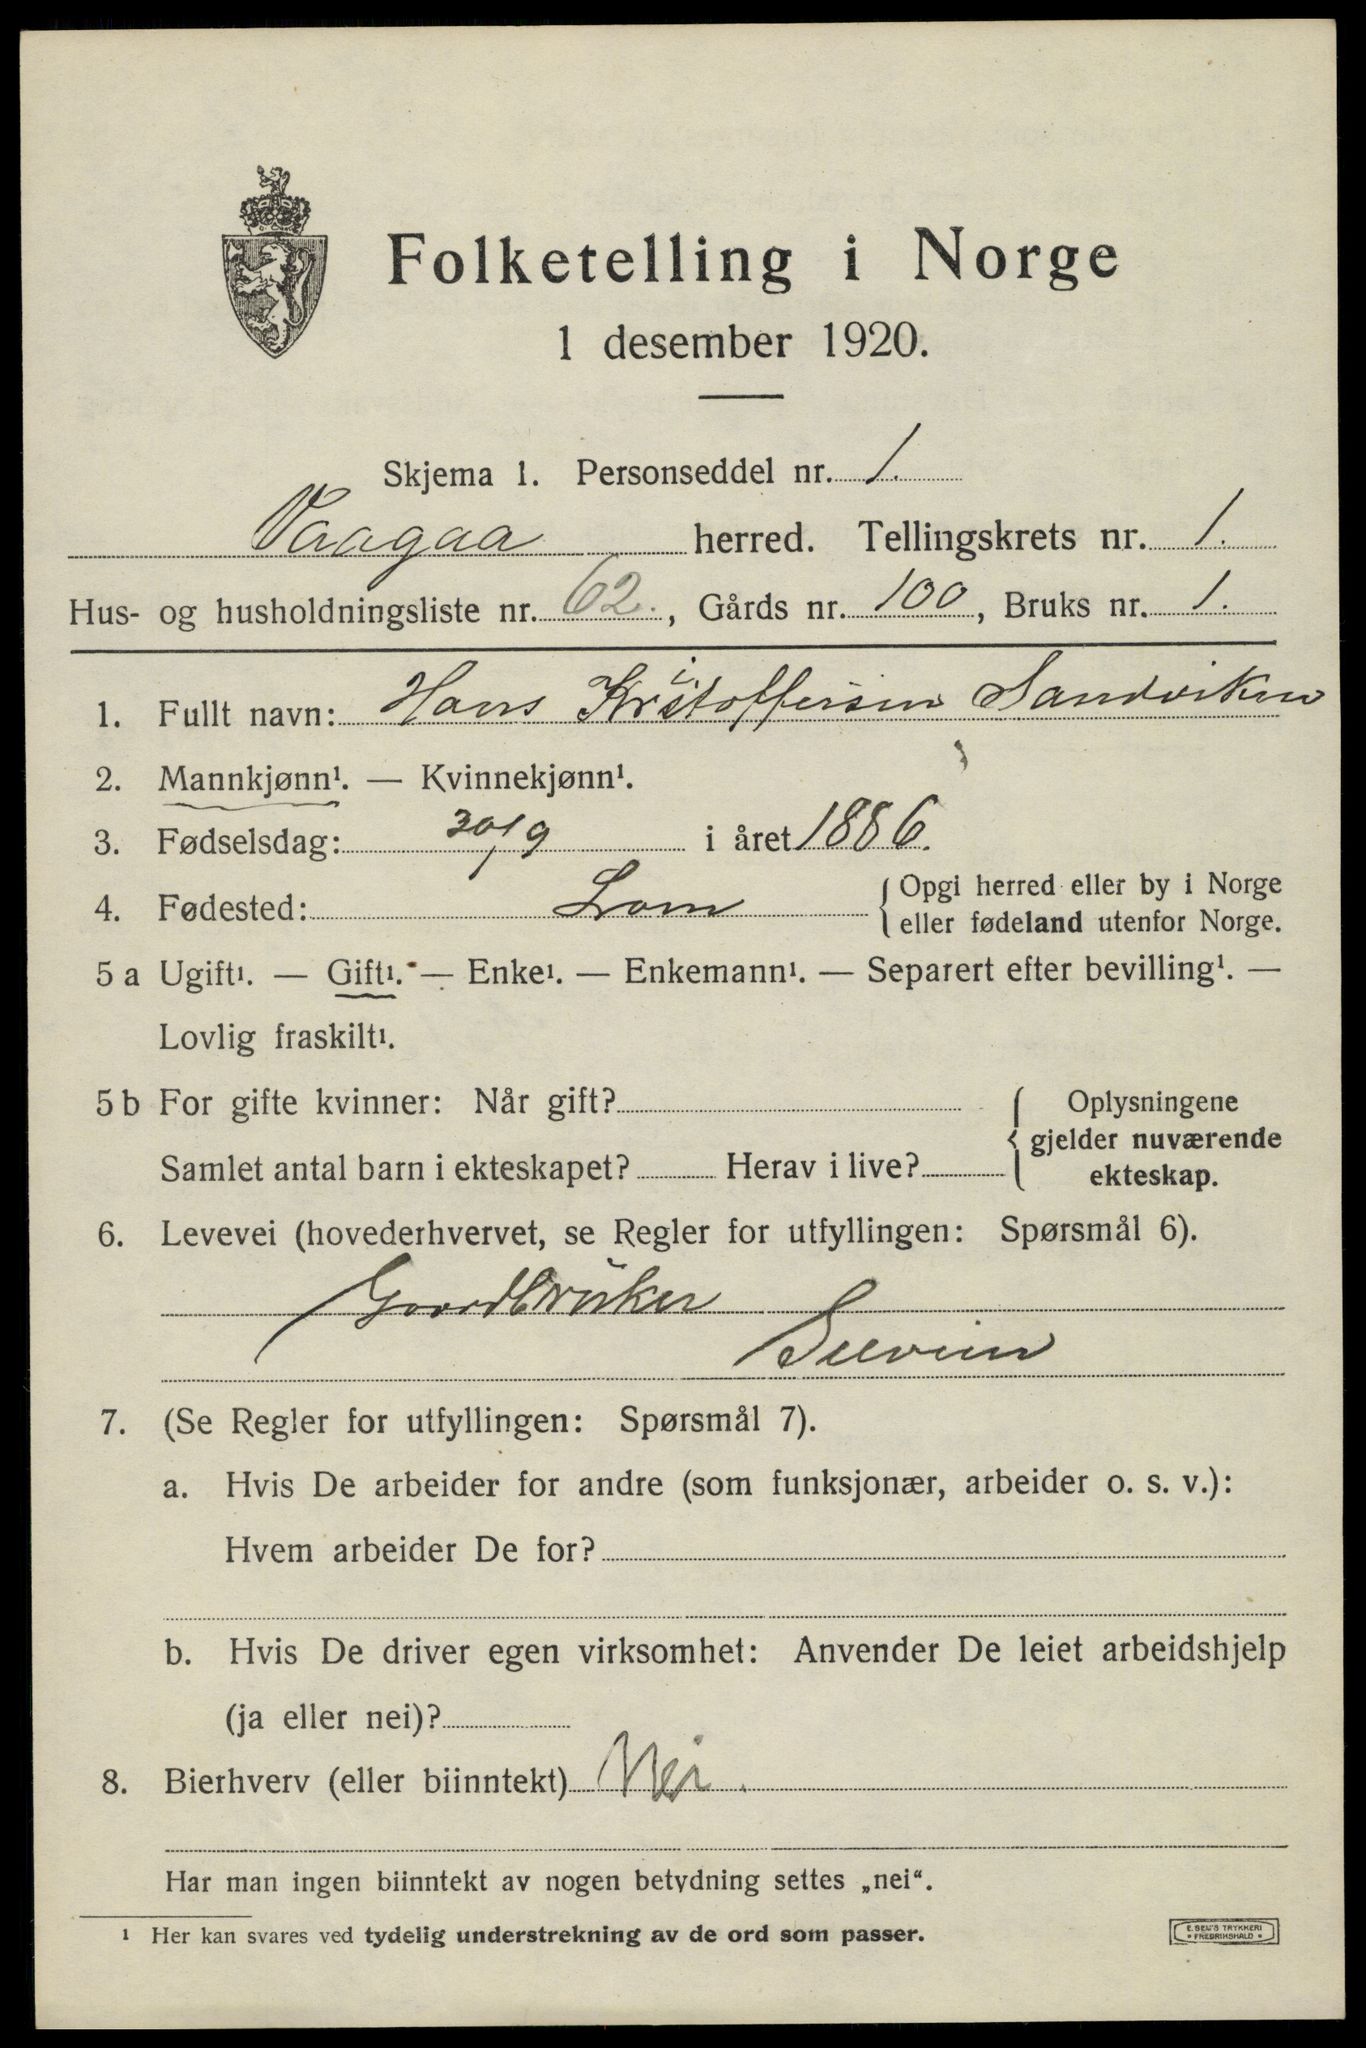 Folketelling i Norge
1 desember 1920.
Skjema 1. Personseddel nr. 1.
Vaagaa herred. Tellingskrets nr. 1.
Hus- og husholdningsliste nr. 62., Gårds nr. 100, Bruks nr. 1.
1. Fullt navn: Hans Kristoffersen Sandviken
2. Mannkjønn¹. — Kvinnekjønn¹.
3. Fødselsdag: 30/9 i året 1886.
4. Fødested: Lom { Opgi herred eller by i Norge
eller fødeland utenfor Norge.
5 a Ugift¹. — Gift¹. — Enke¹. — Enkemann¹. — Separert efter bevilling¹. —
Lovlig fraskilt¹.
5 b For gifte kvinner: Når gift?
Samlet antal barn i ekteskapet? Herav i live?
{ Oplysningene
gjelder nuværende
ekteskap.
6. Levevei (hovederhvervet, se Regler for utfyllingen: Spørsmål 6).
Gaardbruker
7. (Se Regler for utfyllingen: Spørsmål 7).
a. Hvis De arbeider for andre (som funksjonær, arbeider o. s. v.):
Hvem arbeider De for?
b. Hvis De driver egen virksomhet: Anvender De leiet arbeidshjelp
(ja eller nei)?
8. Bierhverv (eller biinntekt) Nei.
Har man ingen biinntekt av nogen betydning settes „nei“.
¹ Her kan svares ved tydelig understrekning av de ord som passer.
E. SEM'S TRYKKERI
• FREDRIKSHALD •